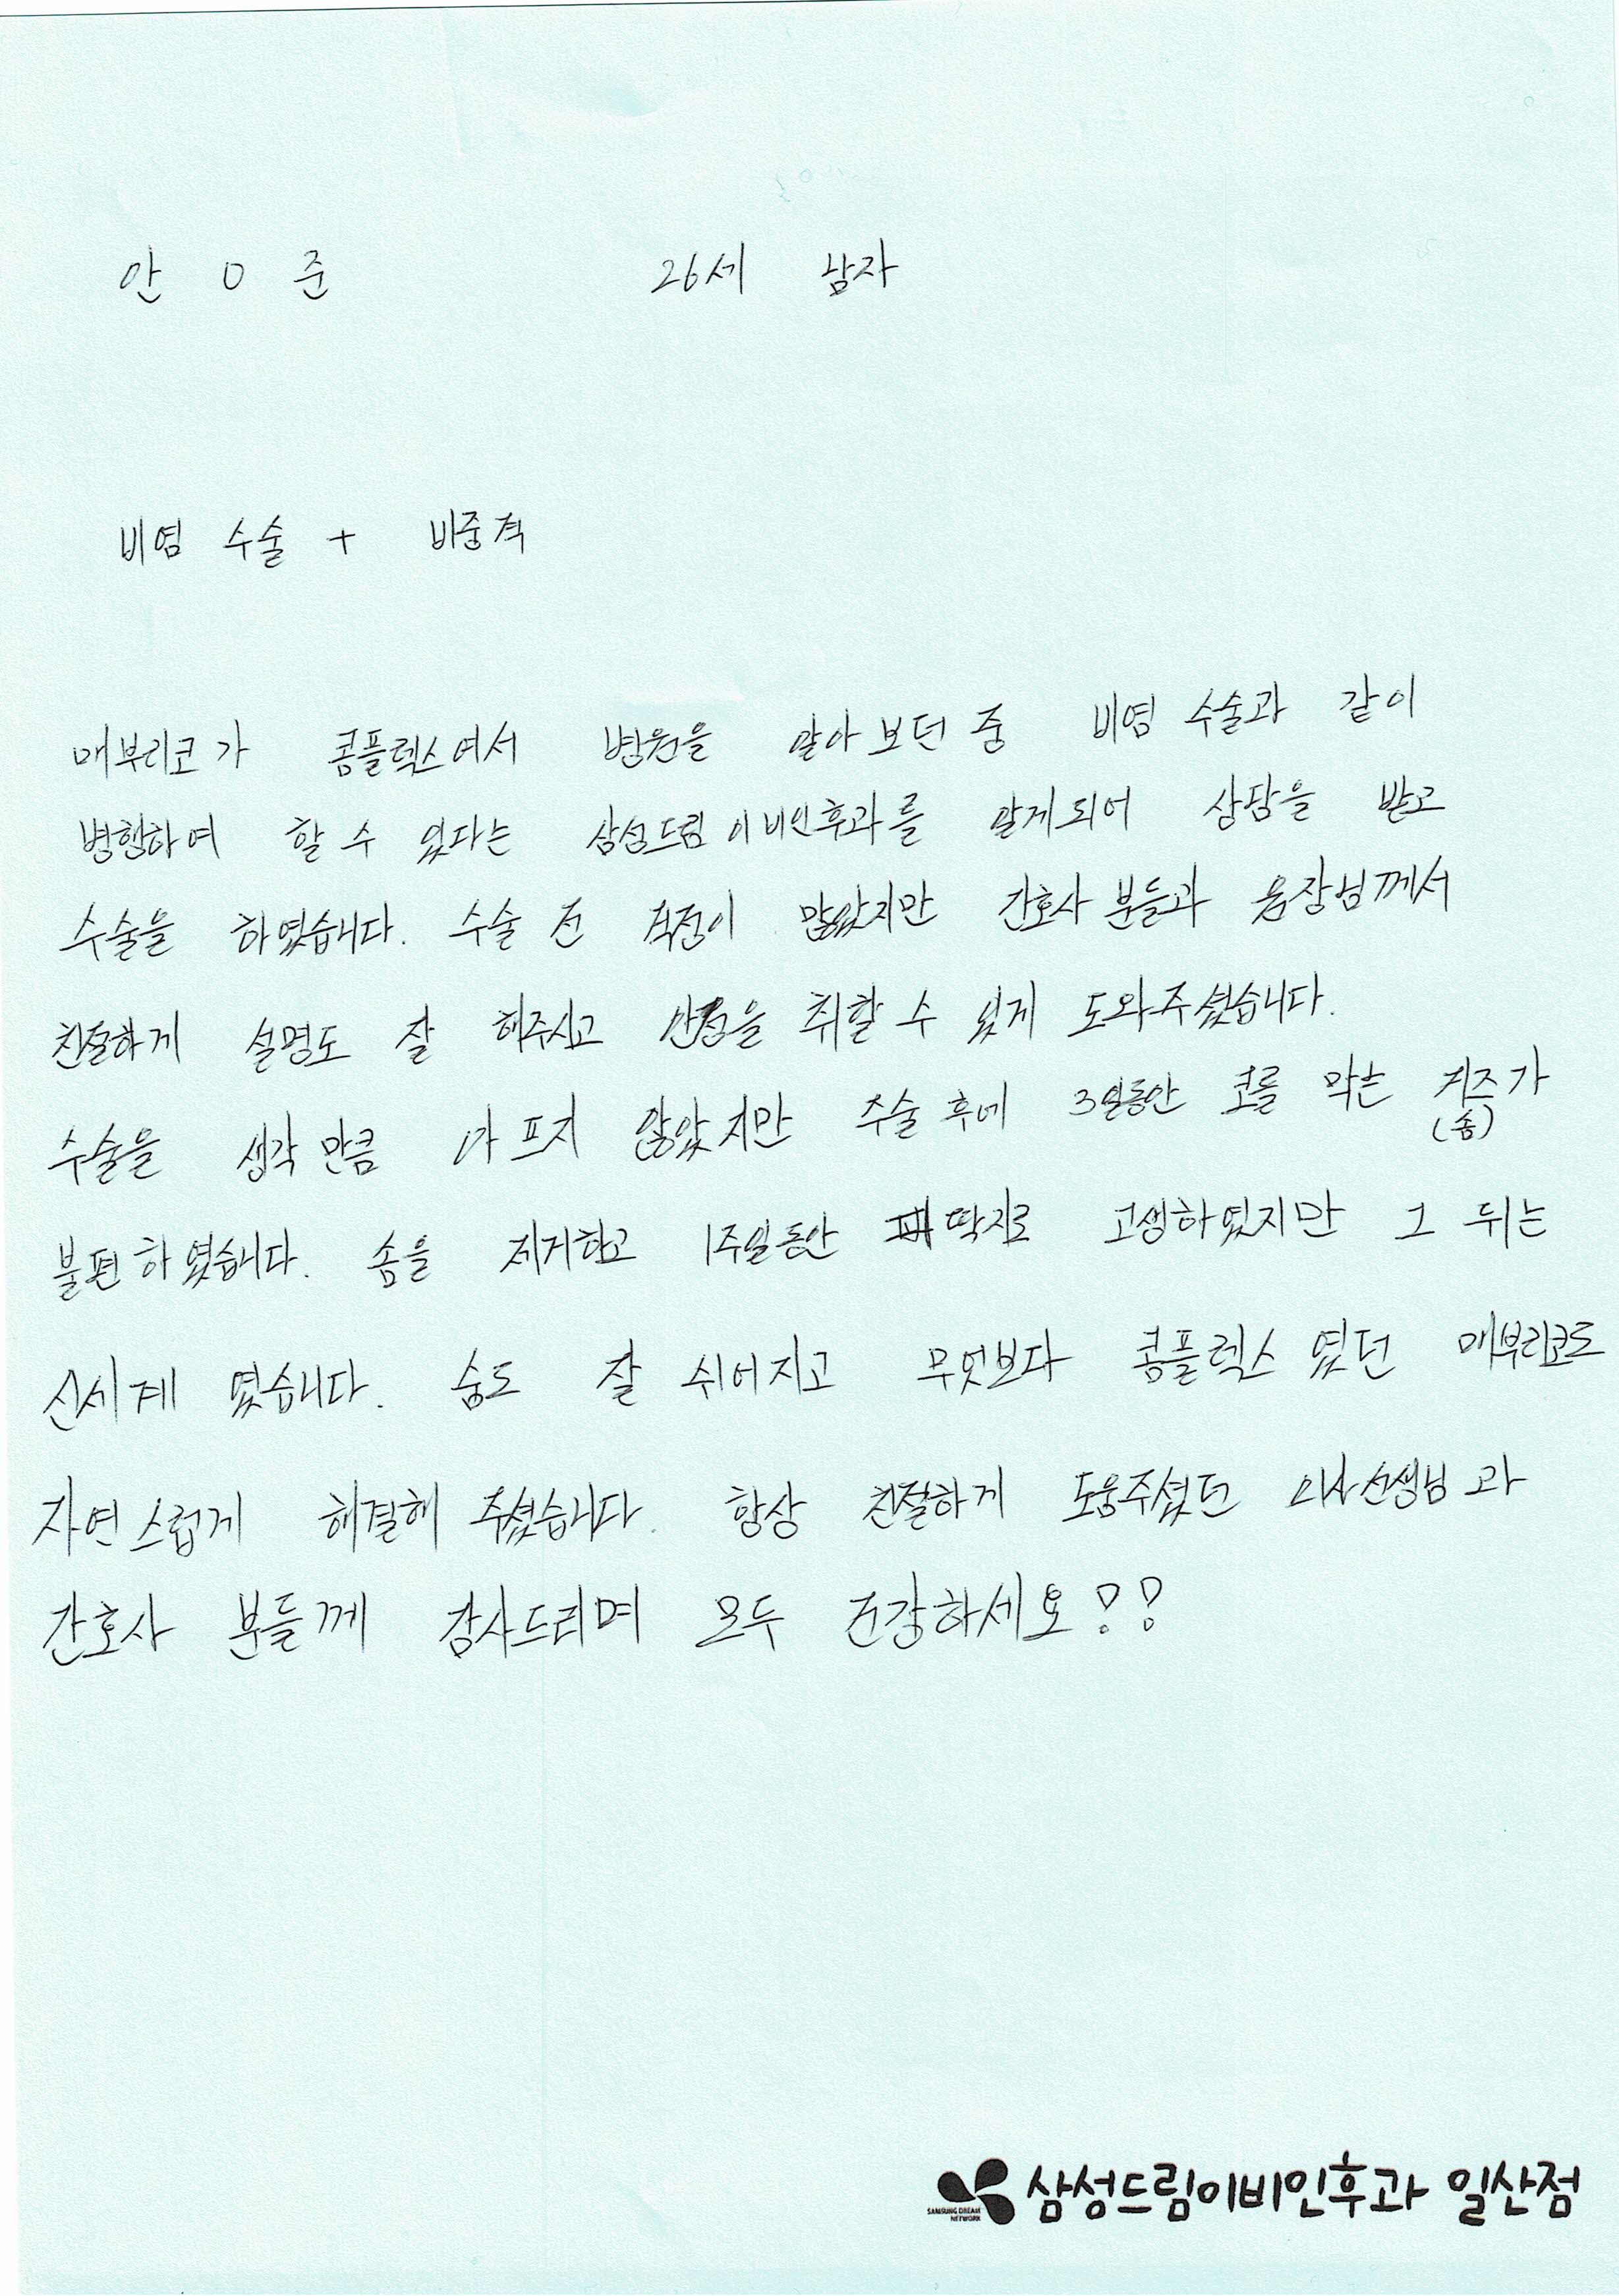 안 O 준 26세 남자
비염 수술 + 비중격
매부리코가 콤플렉스여서 병원을 알아보던 중 비염 수술과 같이
병행하여 할 수 있다는 삼성드림이비인후과를 알게되어 상담을 받고
수술을 하였습니다. 수술 전 걱정이 많았지만 간호사 분들과 원장님께서
친절하게 설명도 잘 해주시고 안정을 취할 수 있게 도와주셨습니다.
수술을 생각만큼 아프지 않았지만 수술 후에 3일동안 코를 막는 거즈가
(솜)
불편하였습니다. 솜을 제거하고 1주일동안 딱지로 고생하였지만 그 뒤는
신세계 였습니다. 숨도 잘 쉬어지고 무엇보다 콤플렉스 였던 매부리코도
자연스럽게 해결해 주셨습니다. 항상 친절하게 도움주셨던 의사선생님과
간호사 분들께 감사드리며 모두 건강하세요!!
SAMSUNG DREAM
NETWORK
삼성드림이비인후과 일산점